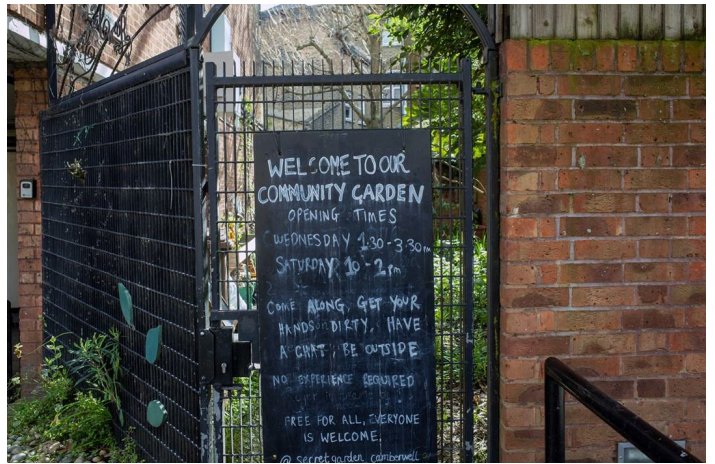 WELCOME TO OUR
COMMUNITY GARDEN
OPENING TIMES
WEDNESDAY 1.30-3.30pm
SATURDAY 10-2pm
COME ALONG, GET YOUR
HANDS DIRTY, HAVE
A CHAT, BE OUTSIDE
NO EXPERIENCE REQUIRED
FREE FOR ALL, EVERYONE
IS WELCOME.
@ secretgarden_camberwell